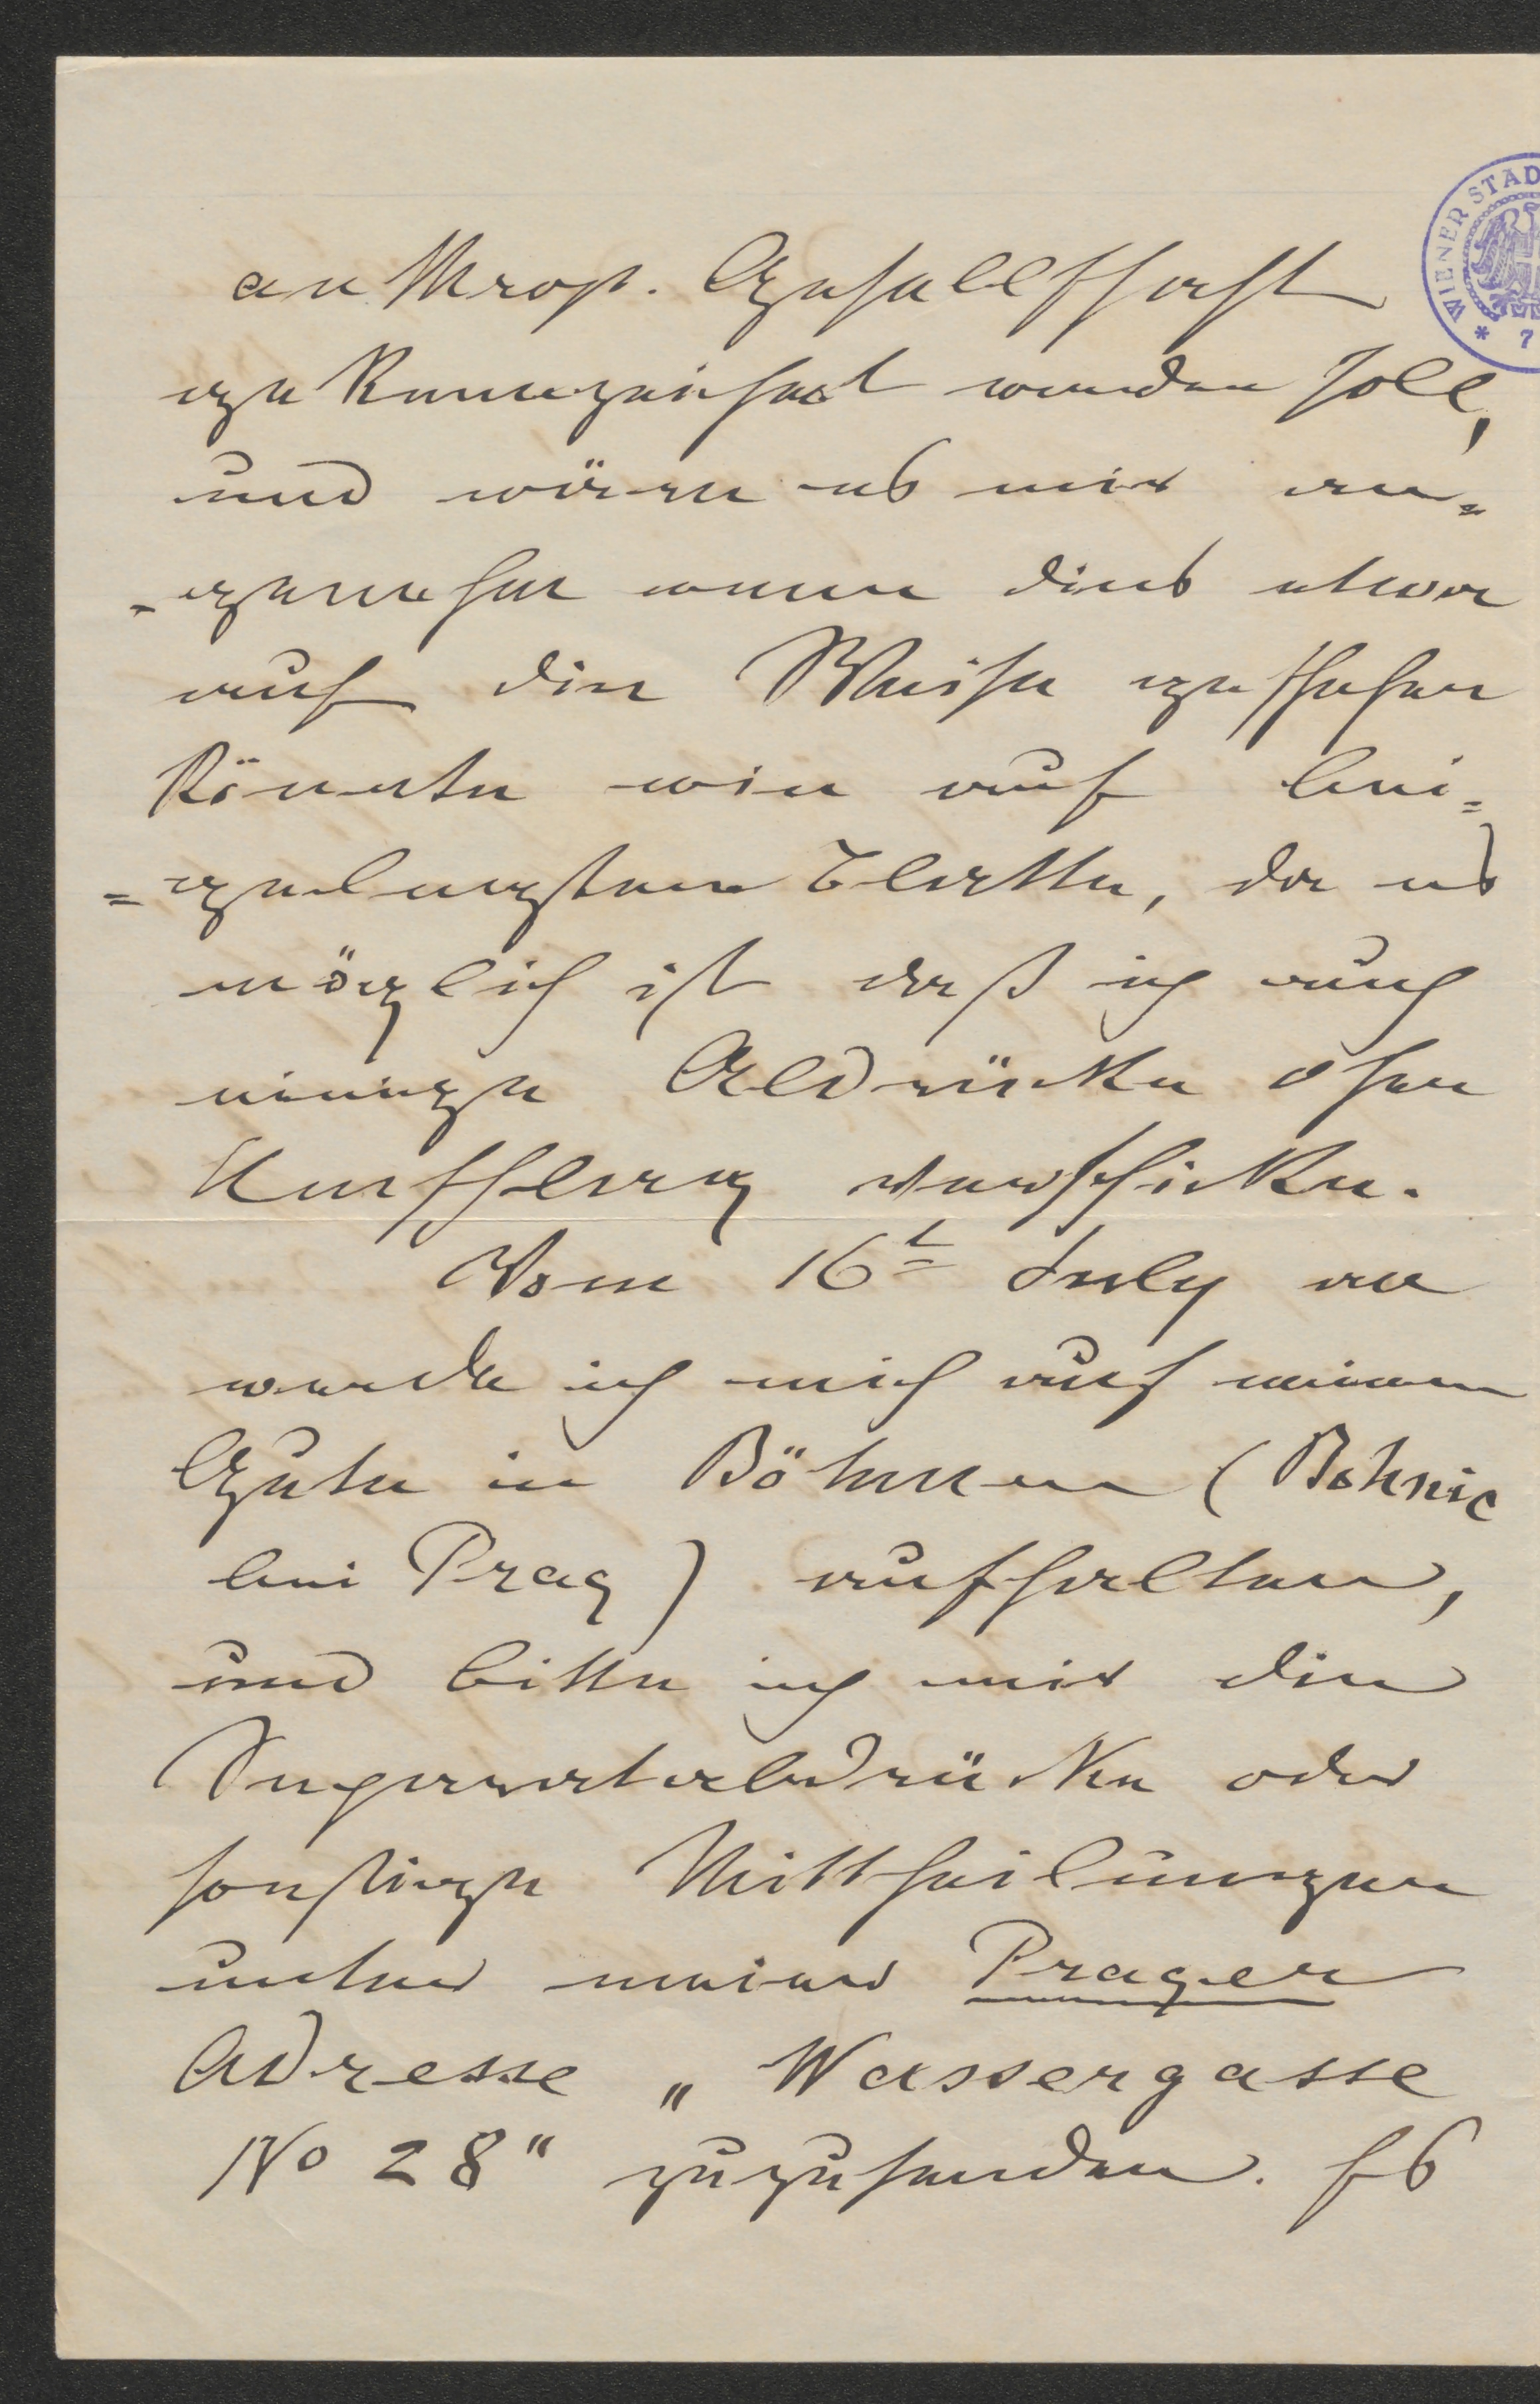 anthrop. Gesellschaft
gekennzeichnet werden soll,
und wäre es mir an=
=genehm wenn dies etwa
auf die Weise geschehen
könnte wie auf bei=
=gelegtem Blatte, da es
möglich ist daß ich auch
einige Abdrücke ohne
Umschlag verschicke.
Vom 16t July an
werde ich mich auf meinem
Gute in Böhmen (Bohnic
bei Prag) aufhalten,
und bitte ich mir die
Separatabdrücke oder
sonstige Mittheilungen
unter meiner Prager
Adresse „Wassergasse
No 28" zuzusenden. Es
WIENER STAD
* 7